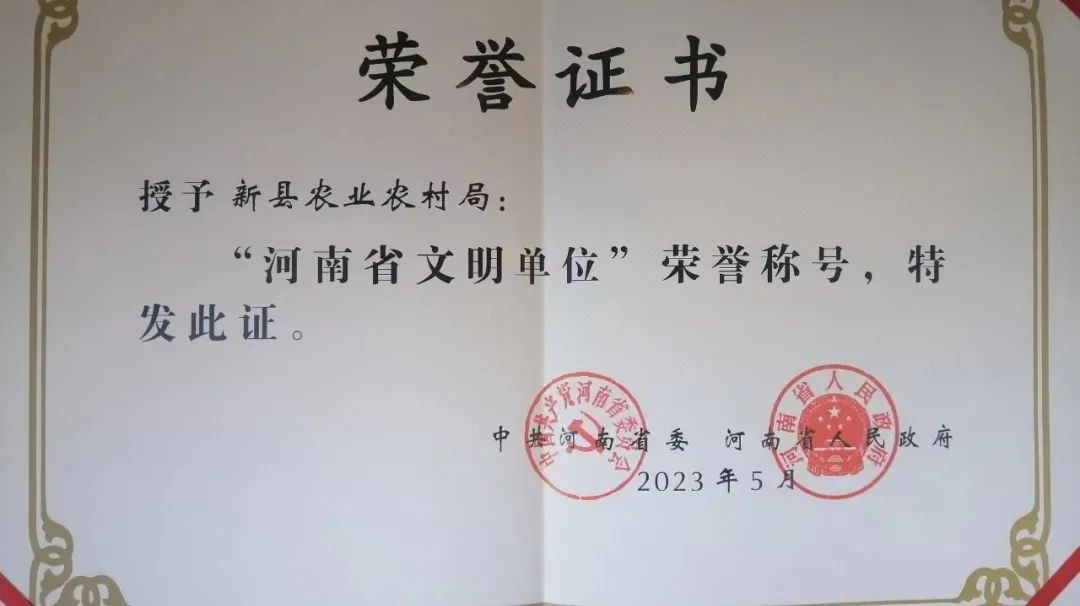 荣誉证书
授予 新县农业农村局：
“河南省文明单位”荣誉称号，特
发此证。
中国共产党河南省委员会
河南省人民政府
中共河南省委 河南省人民政府
2023年5月